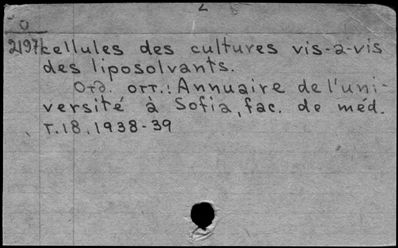 2
O
2197 cellules des cultures vis-a-vis
des liposolvants.
Отд. отт.: Annuaire de l'uni-
versité à Sofia, fac. de méd.
T.18, 1938-39